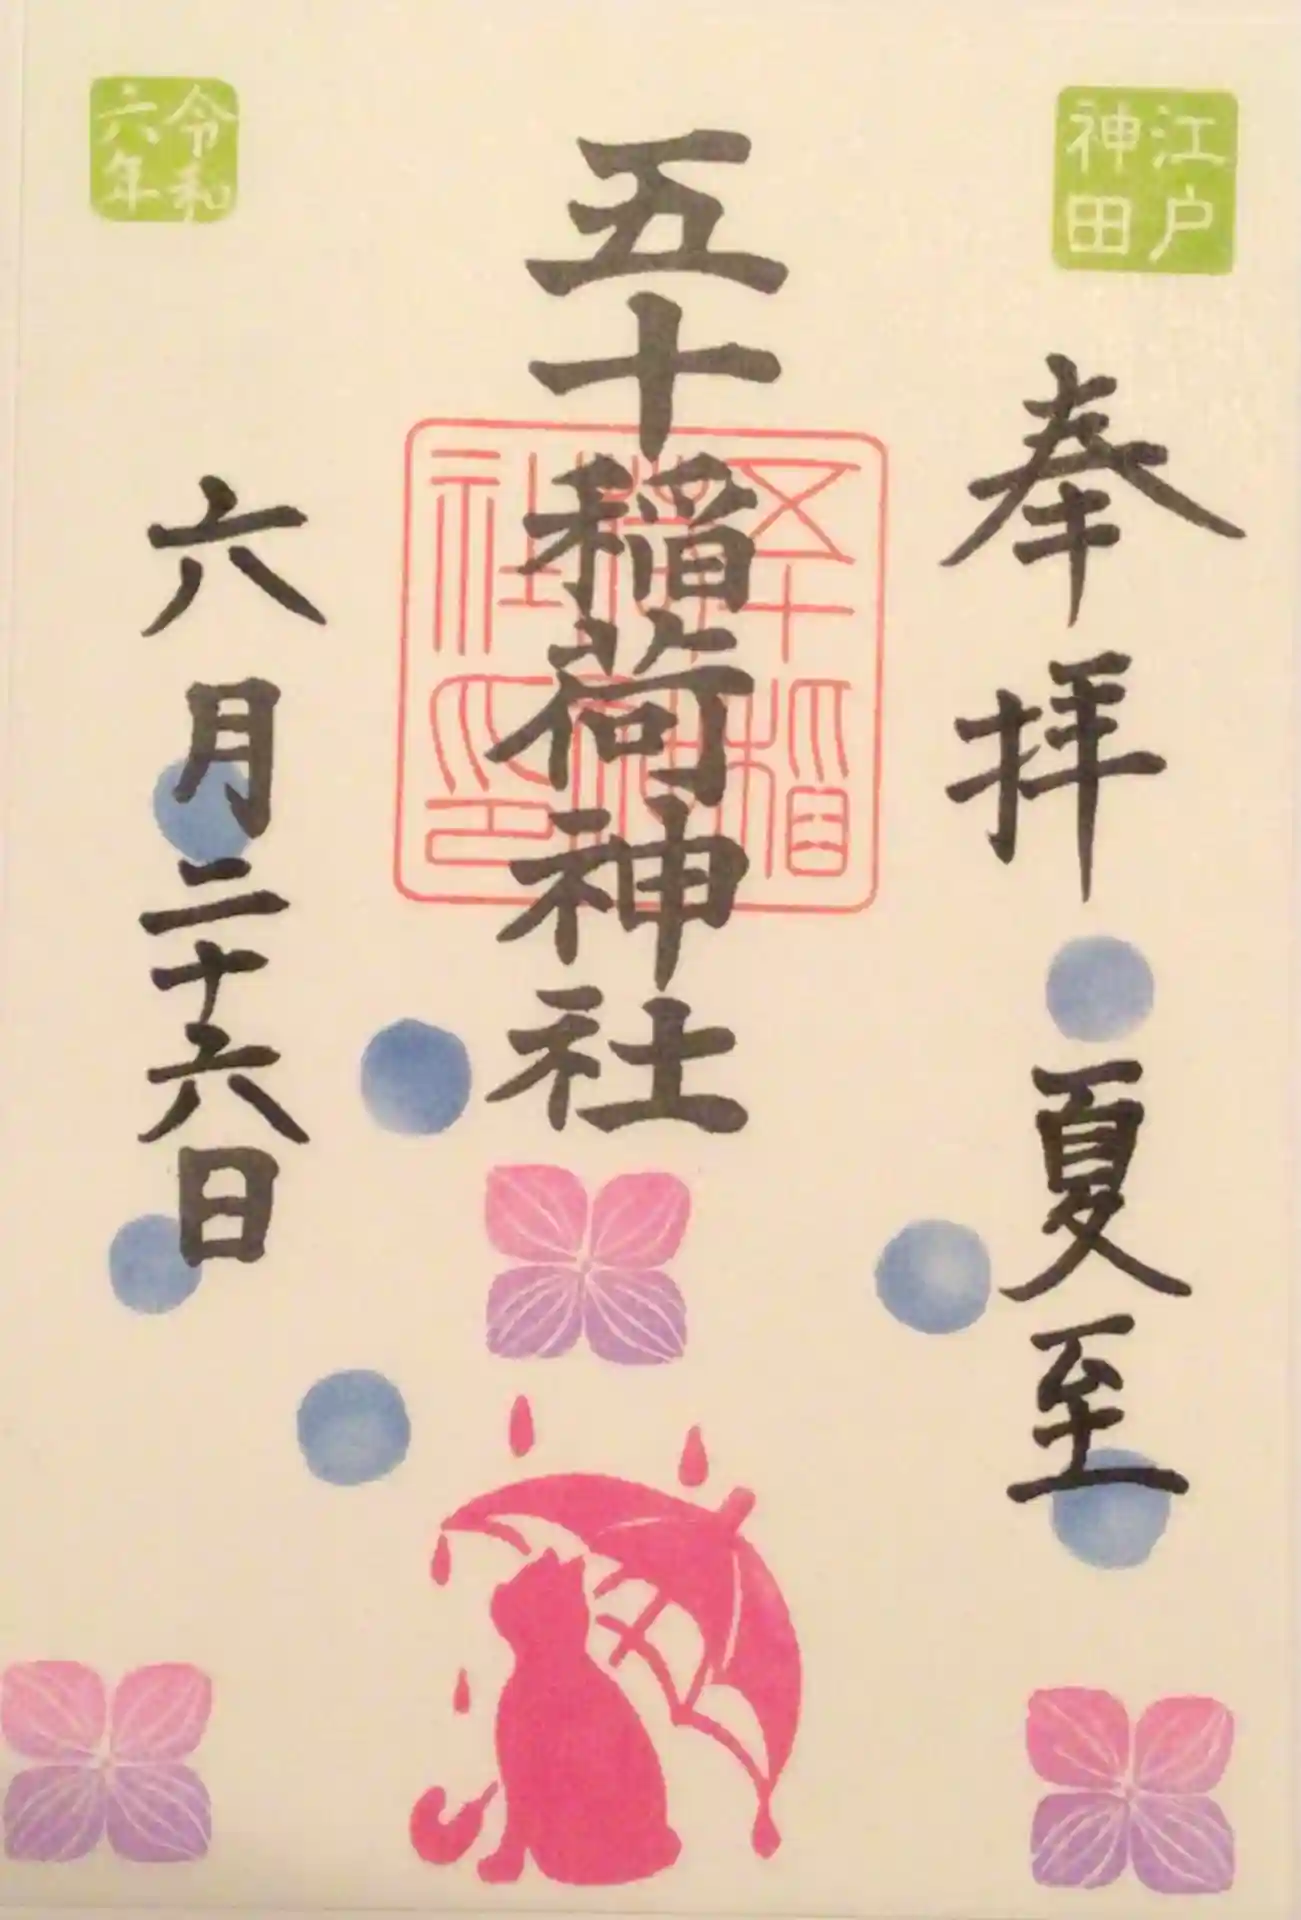 江戸
神田
奉拝
夏至
五十稲荷神社
五十稲
荷神
社印
令和
六年
六月二十六日